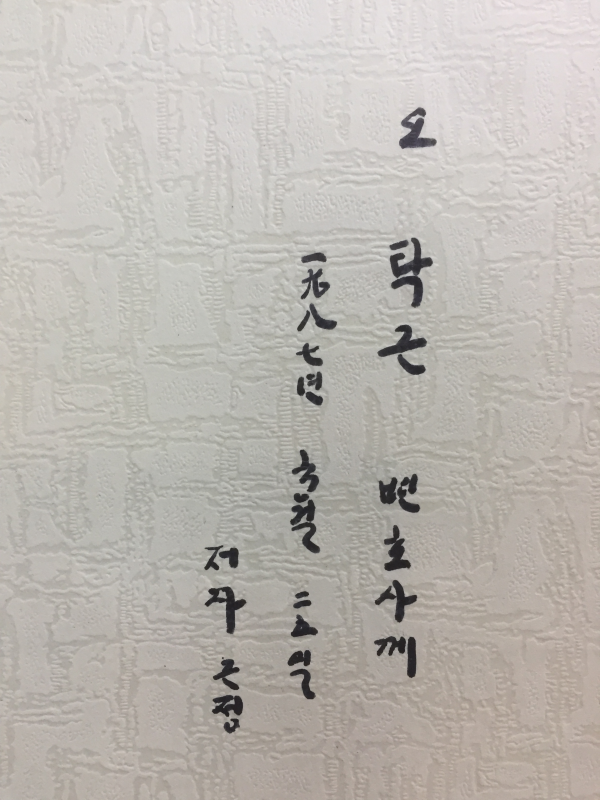 오 탁근 변호사께
一九八七년 二五일
저자 근정